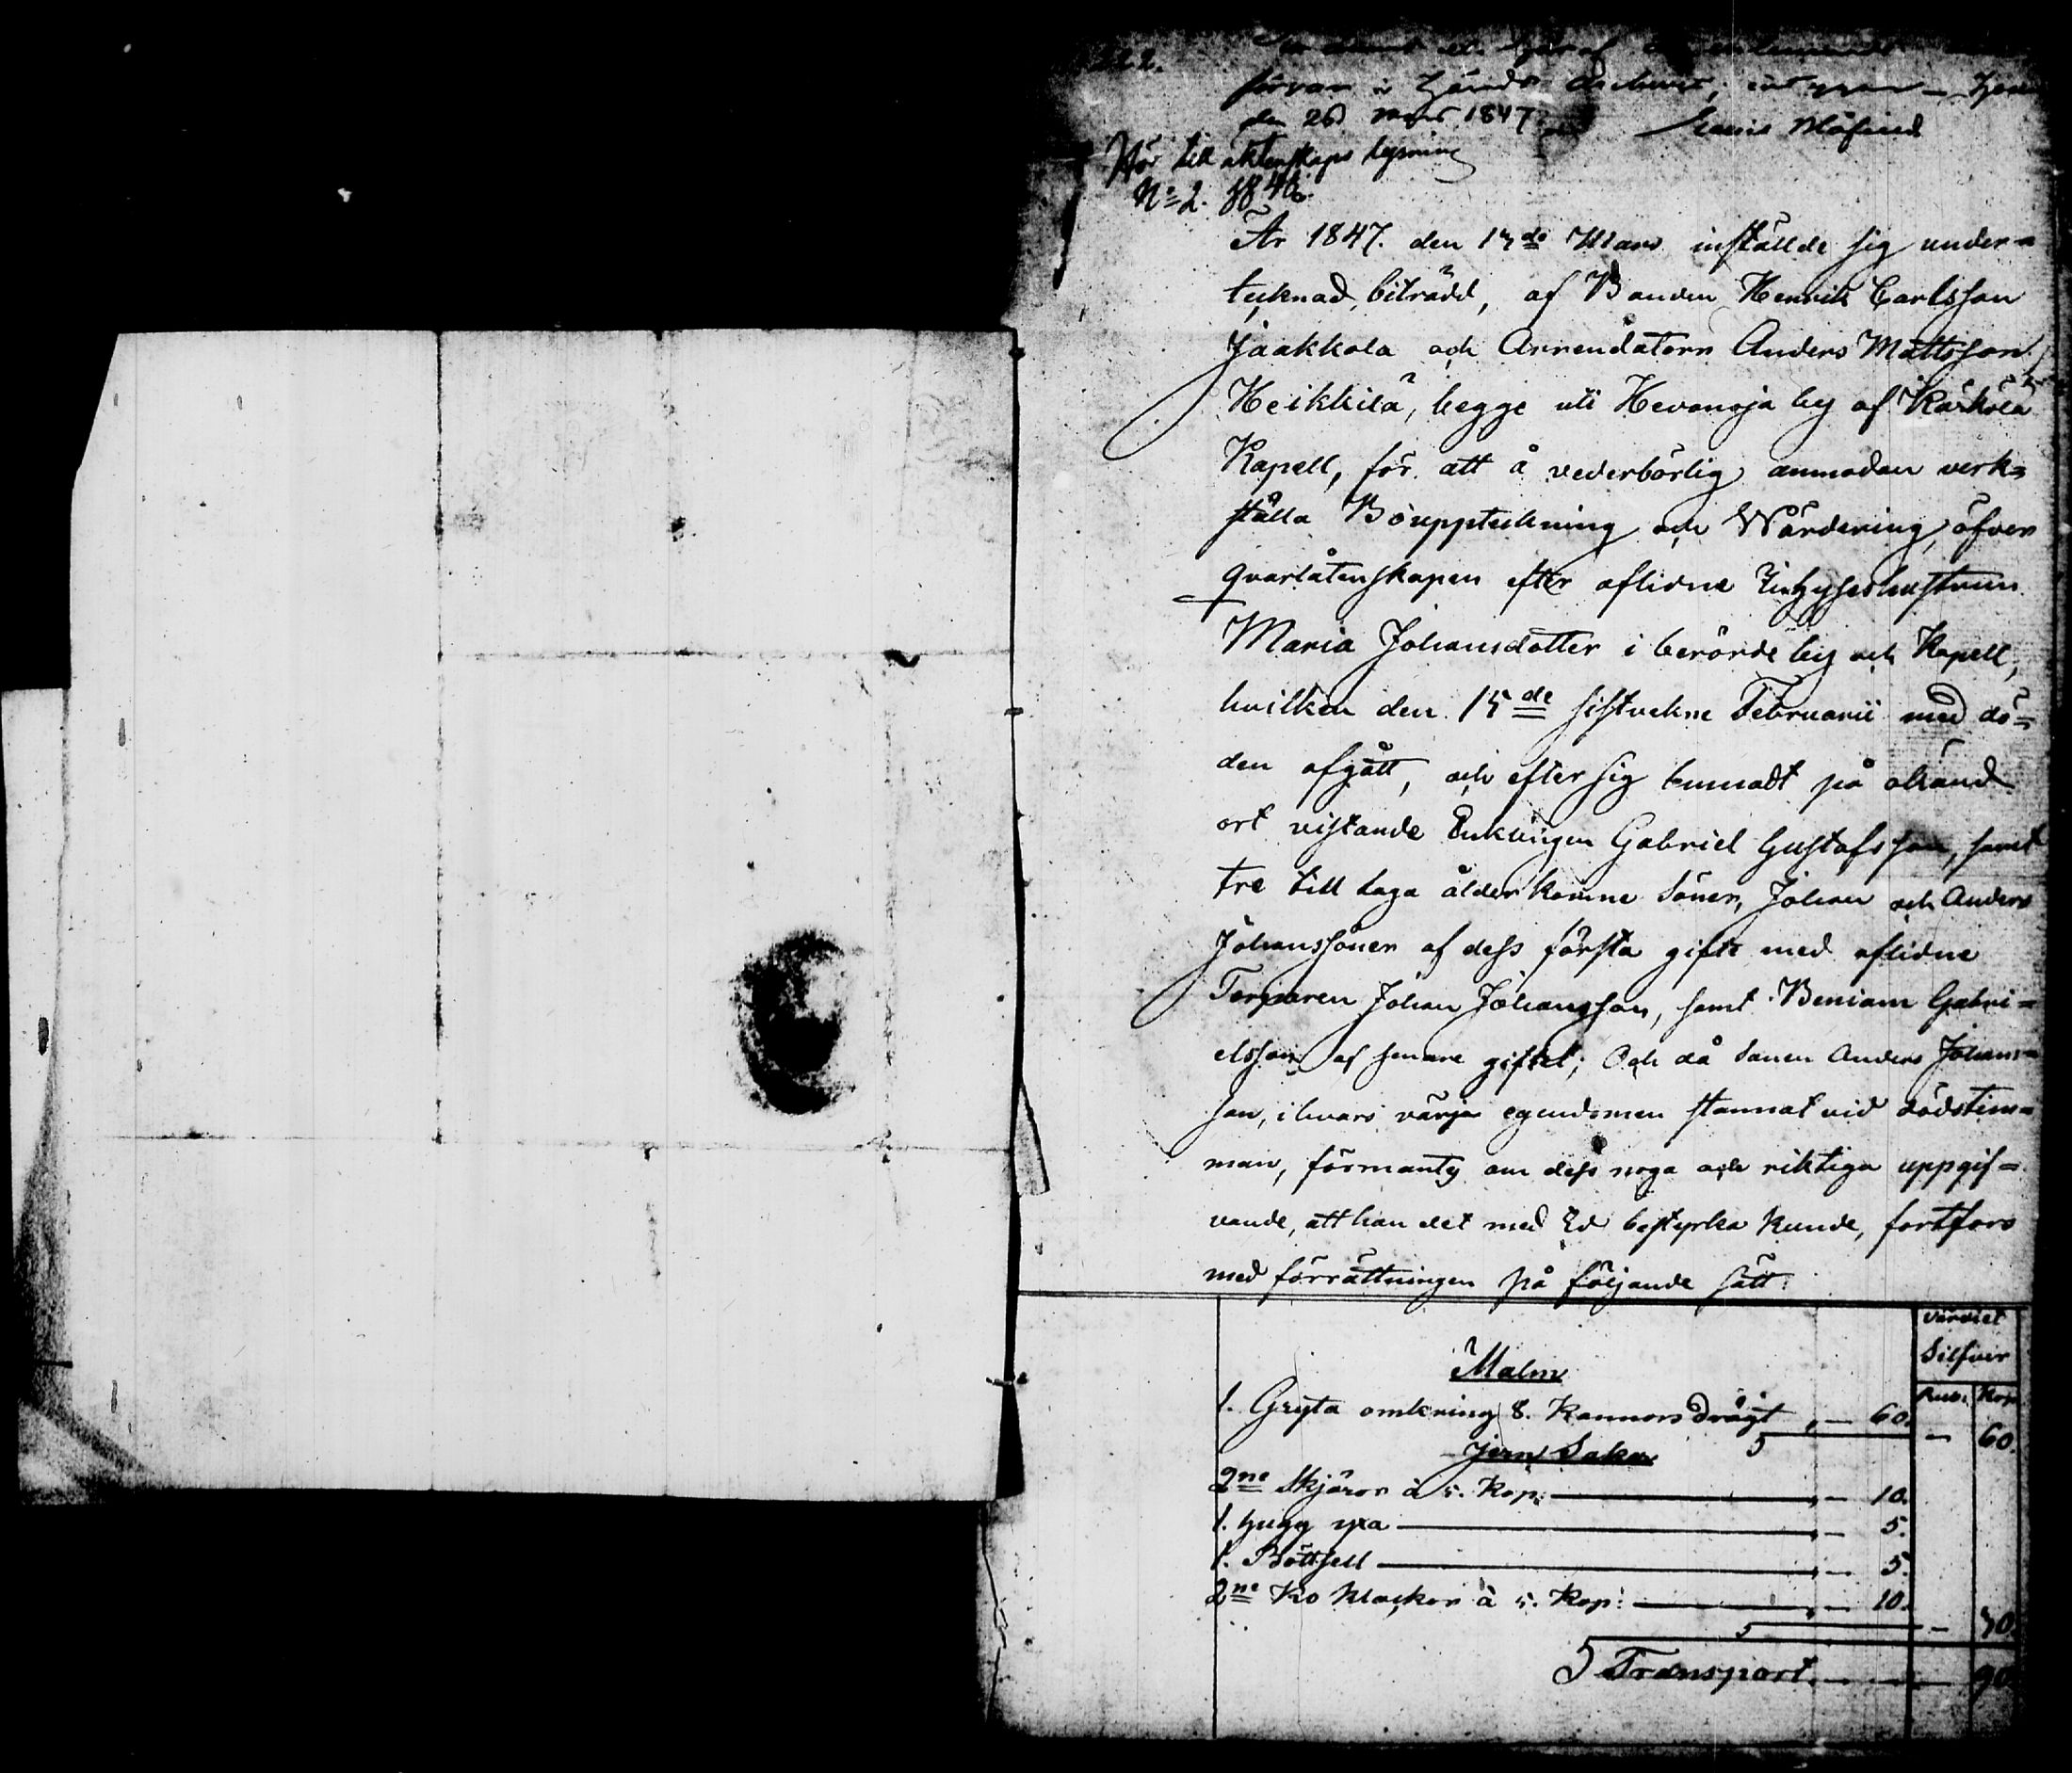 222.
förvar i Härads Archivet,
den 26 Mars 1847.
Hör till äktenskaps lysning
N:o 2. 1846.
År 1847. den 15de Mars inställde sig under=
tecknad, biträdd, af Bonden Henrik Carlsson
Jaakkola och Arrendatorn Anders Mattsson
Heikkilä, begge uti Hevonoja by af Kärkölä
Kapell, för att å vederbörlig anmodan verk=
ställa Bouppteckning och Wärdering, öfver
qvarlåtenskapen efter aflidne Inhyseshustrun
Maria Johansdotter i berörde by och Kapell,
hvilken den 15de sistvekne Februarii med dö=
den afgått, och efter sig lemnadt på okänd
ort vistande Enklingen Gabriel Gustafsson, samt
tre till laga ålder komne Söner, Johan och Anders
Johanssöner af dess första gifte med aflidne
Torparen Johan Johansson, samt Beniam Gabri=
elsson af senare giftet; Och då Sonen Anders Johans=
son, i hvars värjo egendomen stannat vid dödstim=
man, förmants om dess noga och riktiga uppgif=
vande, att han det med Ed bestyrka kunde, fortfors
med förrättningen på följande sätt:
Värdet
Silfver
Rub. Kop
Malm
1. Gryta omkring 8. Kannors drägt „ — 60. — 60.
Jern Saker
2ne Skjäror à 5. Kop: „ — 10.
1. hugg yxa „ — 5.
1. Böttsell „ — 5.
2ne Ko klockor à 5. Kop: „ — 10. — 30.
Transport — 90